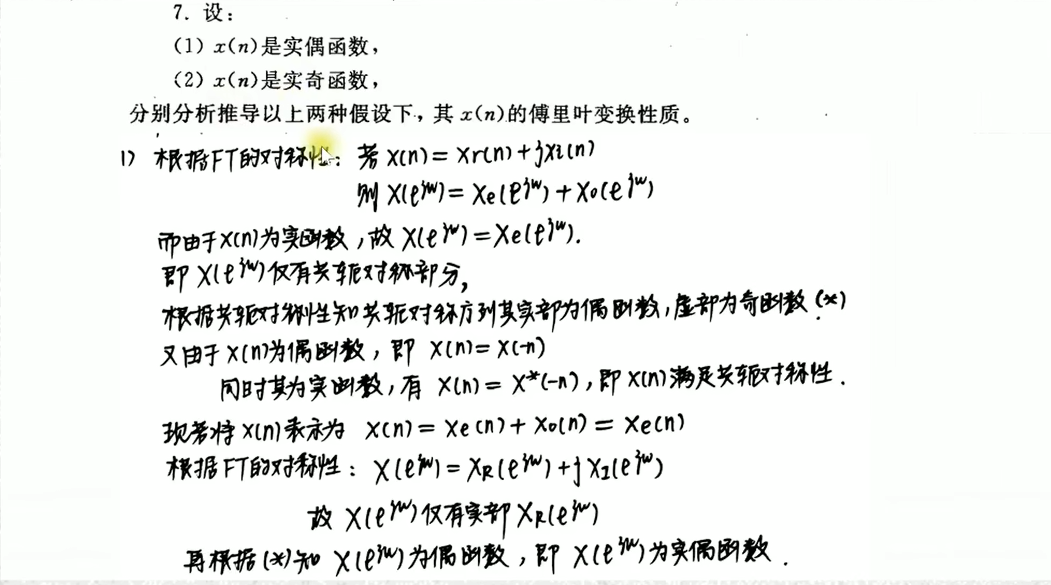 7. 设：
(1) x(n)是实偶函数，
(2) x(n)是实奇函数，
分别分析推导以上两种假设下，其 x(n)的傅里叶变换性质。
1) 根据FT的对称性：若 x(n) = xr(n) + jxi(n)
则 X(e^jw) = Xe(e^jw) + Xo(e^jw)
而由于x(n)为实函数，故 X(e^jw) = Xe(e^jw).
即 X(e^jw)仅有共轭对称部分，
根据共轭对称性知共轭对称序列其实部为偶函数，虚部为奇函数 (*)
又由于 x(n)为偶函数，即 x(n) = x(-n)
同时其为实函数，有 x(n) = x*(-n)，即 x(n)满足共轭对称性.
现若将 x(n)表示为 x(n) = xe(n) + xo(n) = xe(n)
根据FT的对称性：X(e^jw) = XR(e^jw) + jXI(e^jw)
故 X(e^jw)仅有实部 XR(e^jw)
再根据(*)知 X(e^jw)为偶函数，即 X(e^jw)为实偶函数.